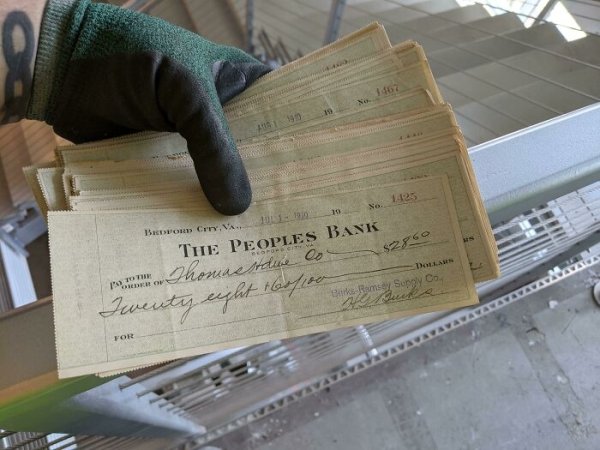 No. 1467
AUG 1 - 1910 19
BEDFORD CITY, VA., JUL 1 - 1910 19 No. 1425
THE PEOPLES BANK
BEDFORD CITY, VA.
PAY TO THE
ORDER OF Thomas Co $28 60
Twenty eight + 60/100 DOLLARS
Burks-Ramsey Supply Co.,
FOR